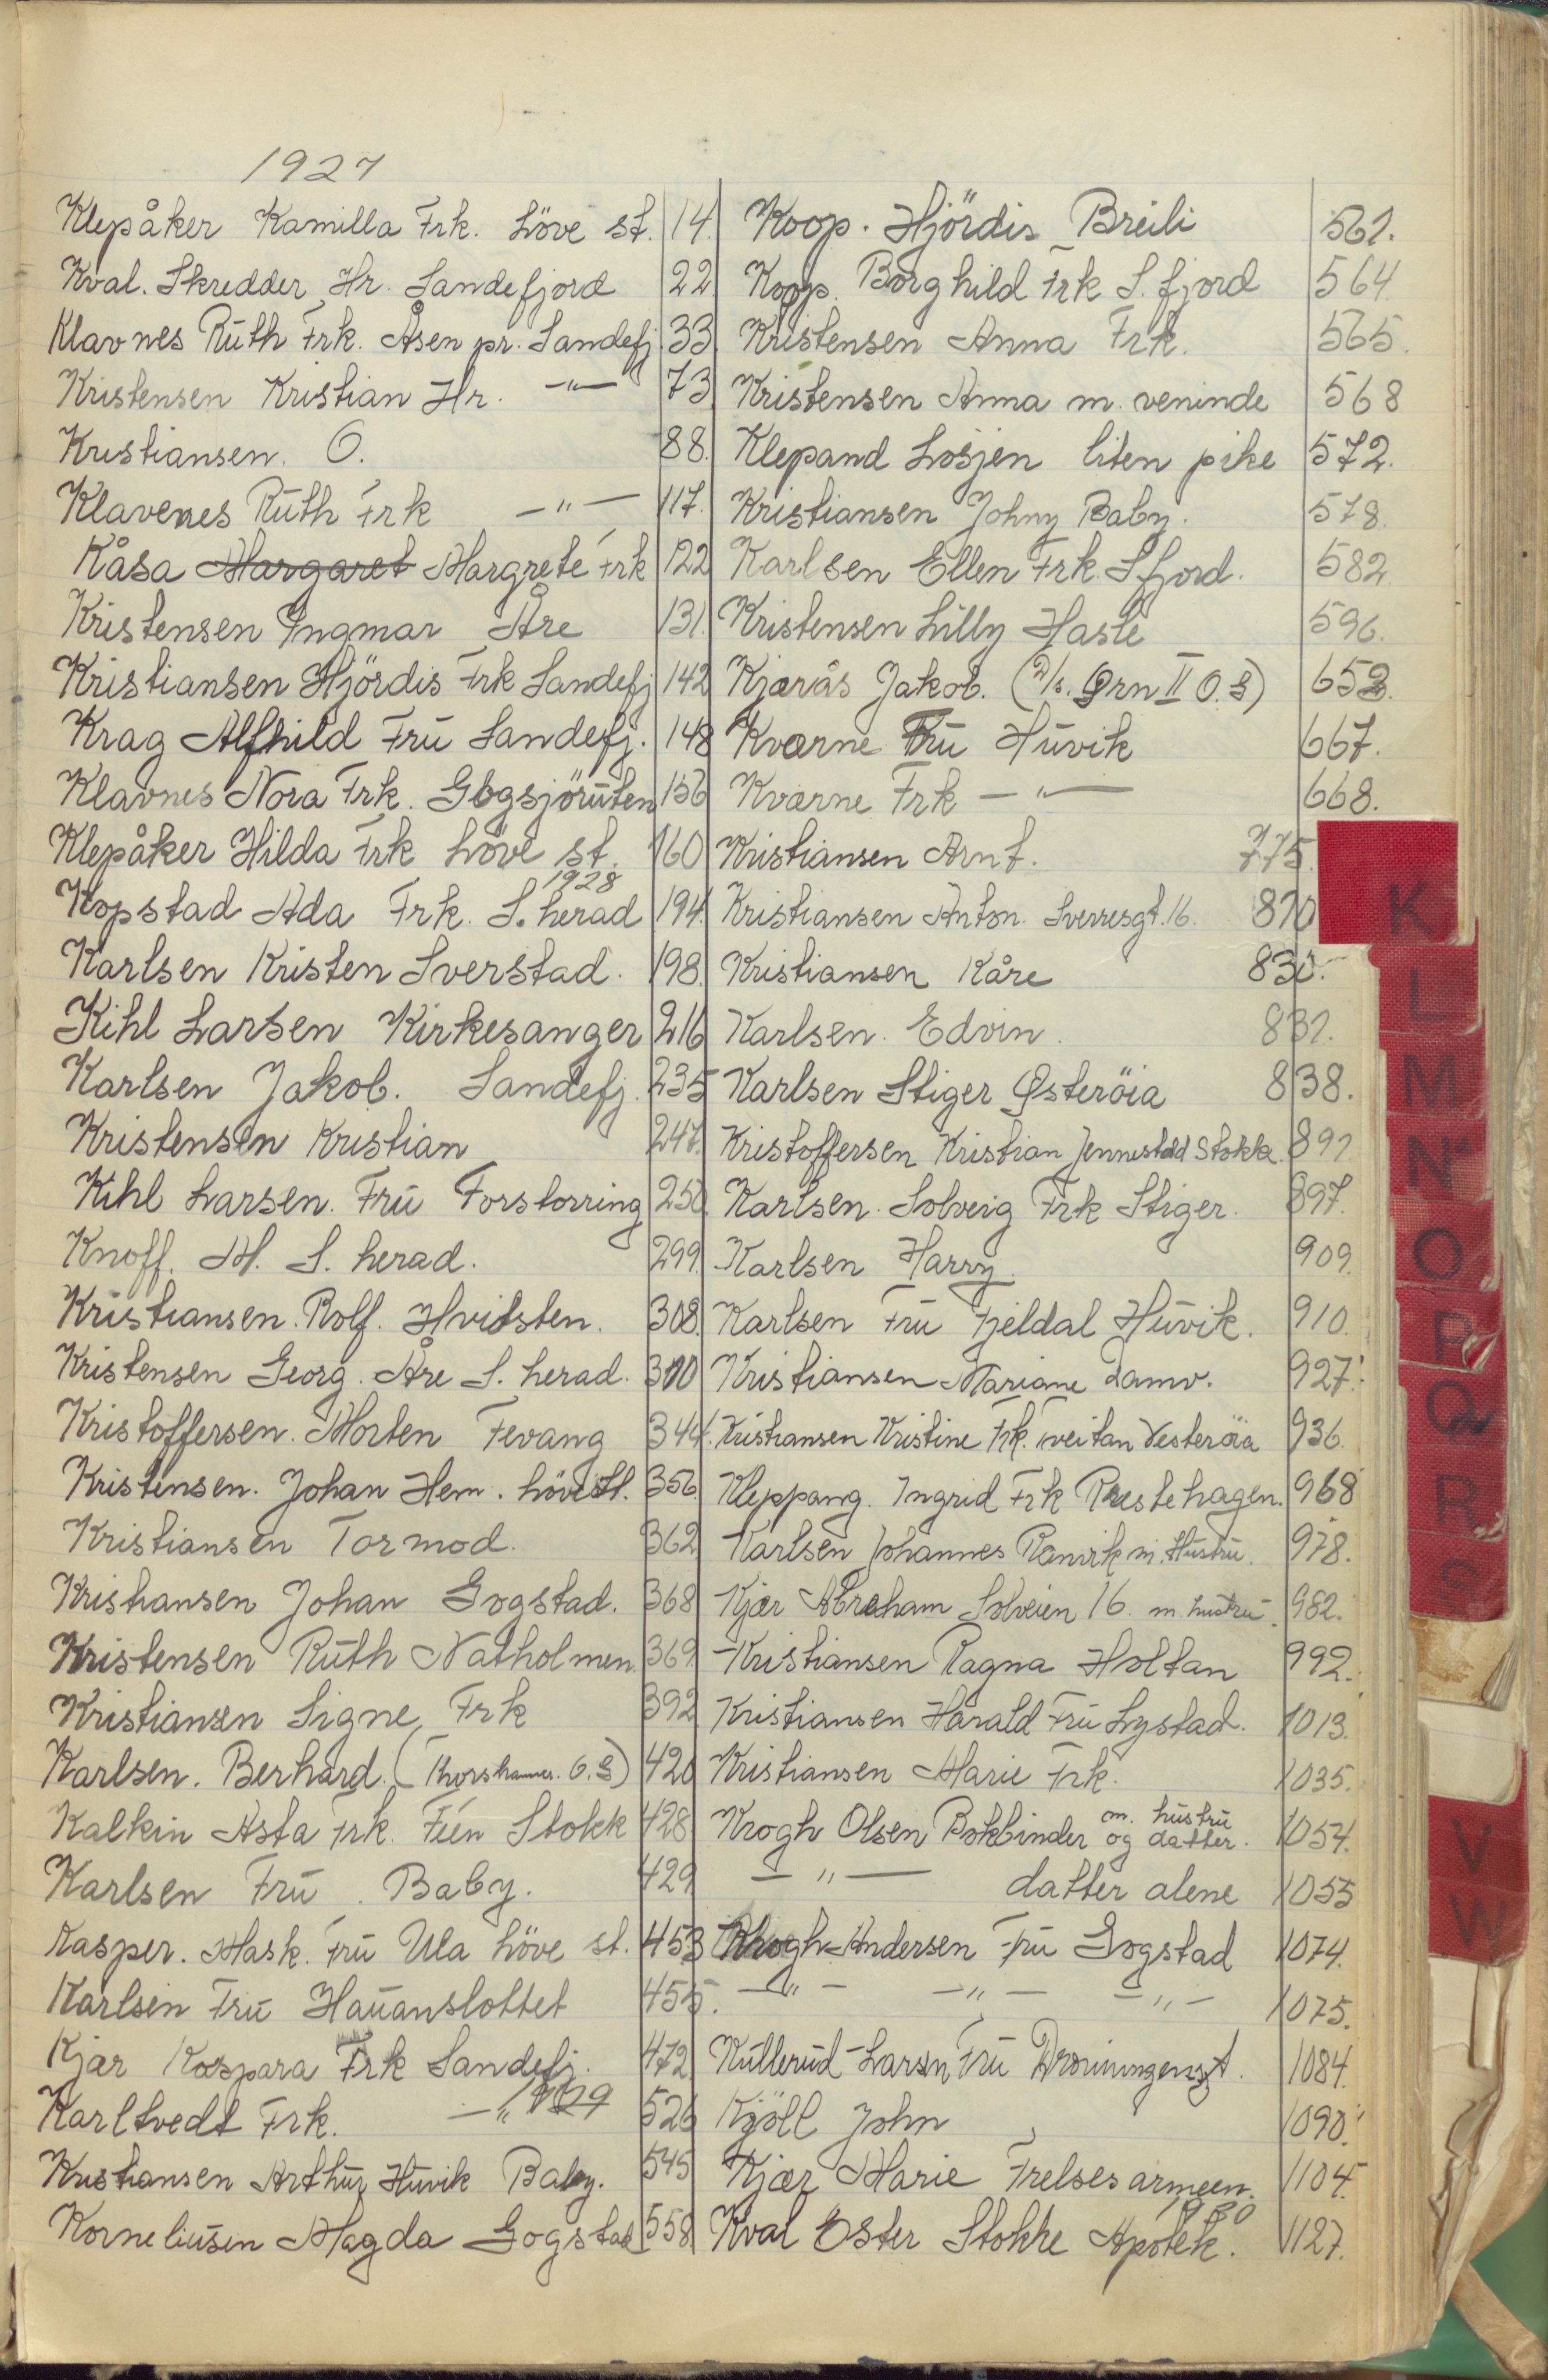 1927
Klepåker Kamilla Frk. Löve st. 14.
Kval. Skredder Hr. Sandefjord 22
Klavnes Ruth Frk. Åsen pr. Sandefj. 33
Kristensen Kristian Hr. —"— 73
Kristiansen. O. 88.
Klavenes Ruth Frk —"— 117.
Kåsa Margaret Margrete Frk 122
Kristensen Ingmar Åre 131.
Kristiansen Hjördis Frk Sandefj 142
Krag Alfhild Fru Sandefj. 148
Klavnes Nora Frk. Gogsjöruten 156
Klepåker Hilda Frk Löve st. 160
1928
Kopstad Ada Frk. S. herad 194.
Karlsen Kristen Sverstad. 198.
Kihl Larsen Kirkesanger 216
Karlsen Jakob. Sandefj. 235
Kristensen Kristian 247.
Kihl Larsen. Fru Forstorring 250.
Knoff. M. S. herad. 299.
Kristiansen. Rolf. Hvidsten. 308.
Kristensen Georg. Åre S. herad. 310
Kristoffersen. Morten Fevang 344.
Kristensen. Johan Hem. Löve st. 356.
Kristiansen Tormod. 362
Kristiansen Johan Gogstad. 368
Kristensen Ruth Natholmen. 369
Kristiansen Signe Frk 392
Karlsen. Berhard. (Thorshammer. O.S) 420
Kalkin Asta Frk. Fén Stokk 428
Karlsen Fru. Baby. 429
Kasper. Mask. Fru Ula Löve st. 453
Karlsen Fru Hauanslottet 455.
Kjær Kaspara Frk Sandefj. 472
1929
Karltvedt Frk. —"— 526
Kristiansen Arthur Huvik Baby. 545
Korneliusen Magda Gogstad 558
Koop. Hjördis Breili 561.
Koop. Borghild Frk S. fjord 564
Kristensen Anna Frk. 565.
Kristensen Anna m. veninde 568
Klepand Losjen liten pike 572.
Kristiansen Johny Baby. 578.
Karlsen Ellen Frk. S fjord. 582.
Kristensen Lilly Hasle 596.
Kjærås Jakob. (D/s. Ørn II O.S) 652.
Kværne Fru Huvik 667.
Kværne Frk —"— 668.
Kristiansen Arnt. 775.
Kristiansen Anton. Sverresgt. 16. 810
Kristiansen Kåre 830.
Karlsen. Edvin. 831.
Karlsen Stiger Østeröia 838.
Kristoffersen Kristian Jennestad Stokk. 891
Karlsen. Solveig Frk Stiger. 897.
Karlsen Harry. 909.
Karlsen Fru Fjeldal Huvik. 910.
Kristiansen Mariane Damv. 927.
Kristiansen Kristine Frk. Tveitan Vesteröia 936.
Kleppang. Ingrid Frk Prestehagen. 968
Karlsen Johannes Ranvik m. Hustru. 978.
Kjær Abraham Solveien 16. m. hustru. 982.
Kristiansen Ragna Holtan 992.
Kristiansen Harald Fru Lystad. 1013.
Kristiansen Marie Frk. 1035.
Krogh Olsen Bokbinder m. hustru og datter. 1054.
—"— datter alene 1055
Krogh-Andersen Fru Gogstad 1074.
—"— —"— —"— 1075.
Kullerud-Larsen, Fru Dronningensgt. 1084.
Kjöll John 1090.
Kjær Marie Frelsesarmeen. 1104.
1930
Kval Ester Stokke Apotek. 1127.
K
L
M
N
O
P
Q
R
S
V
W